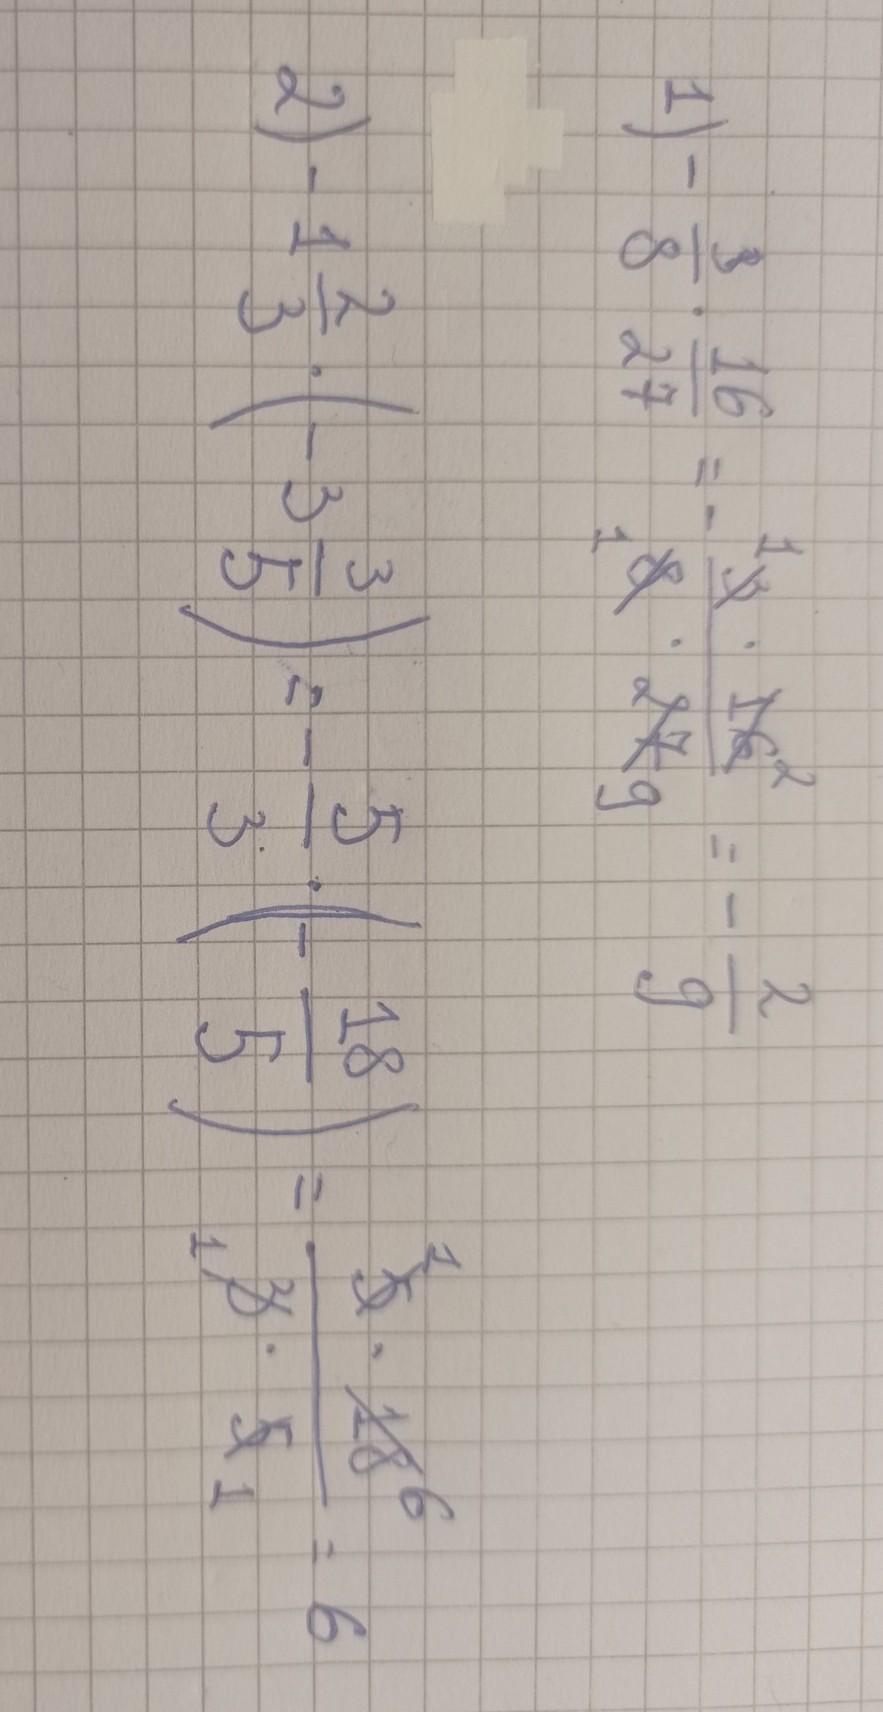 1) - 3/8 · 16/27 = - (¹3 · 16²)/(₁8 · 27₉) = - 2/9
2) - 1 2/3 · (- 3 3/5) = - 5/3 · (- 18/5) = (5¹ · 18⁶)/(₁3 · 5₁) = 6